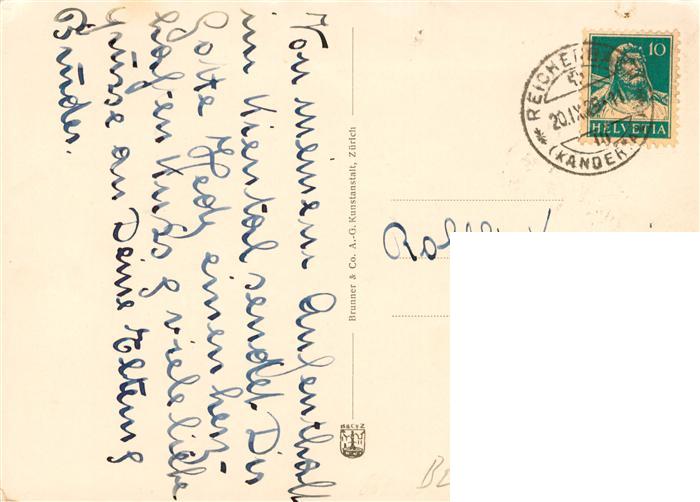 Von meinem Aufenthalt
im Kiental sendet Dir
Gotte Hedy einen herz-
haften Kuss & viele liebe
Grüsse an Deine Eltern &
Brüder.
Brunner & Co. A.-G. Kunstanstalt, Zürich
10
HELVETIA
20.IX
(KANDER
B&CºZ